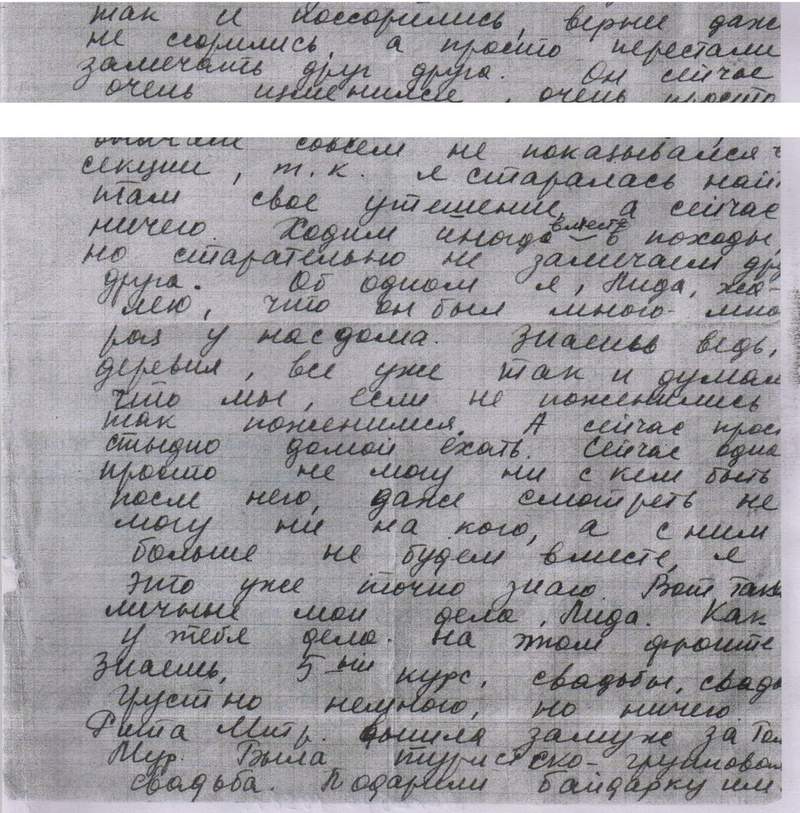 так и поссорились, верние даже
не сорились, а просто перестали
замечать друг друга. Он сейчас
очень изменился, очень просто
вначале совсем не показывался
секции, т.к. я старалась най
там свое утешение, а сейчас
ничего. Ходим иногда вместе в походы,
но старательно не замечаем дру
друга. Об одном я, Лида, жа-
лею, что он был много-мно
раз у нас дома. Знаешь ведь,
деревня, все уже так и думал
что мы, если не поженились
так поженимся. А сейчас прос
стыдно домой ехать. Сейчас одна
просто не могу ни с кем быть
после него, даже смотреть не
могу ни на кого, а с ним
больше не будем вместе, я
это уже точно знаю. Вот таки
личные мои дела, Лида. Как
у тебя дела на этом фронте
Знаешь, 5-ый курс, свадьбы, свадь
грустно немного, но ничего
Рита Митр. вышла замуж за Тол
Мур. Была туристско-групповая
свадьба. Подарили байдарку им.